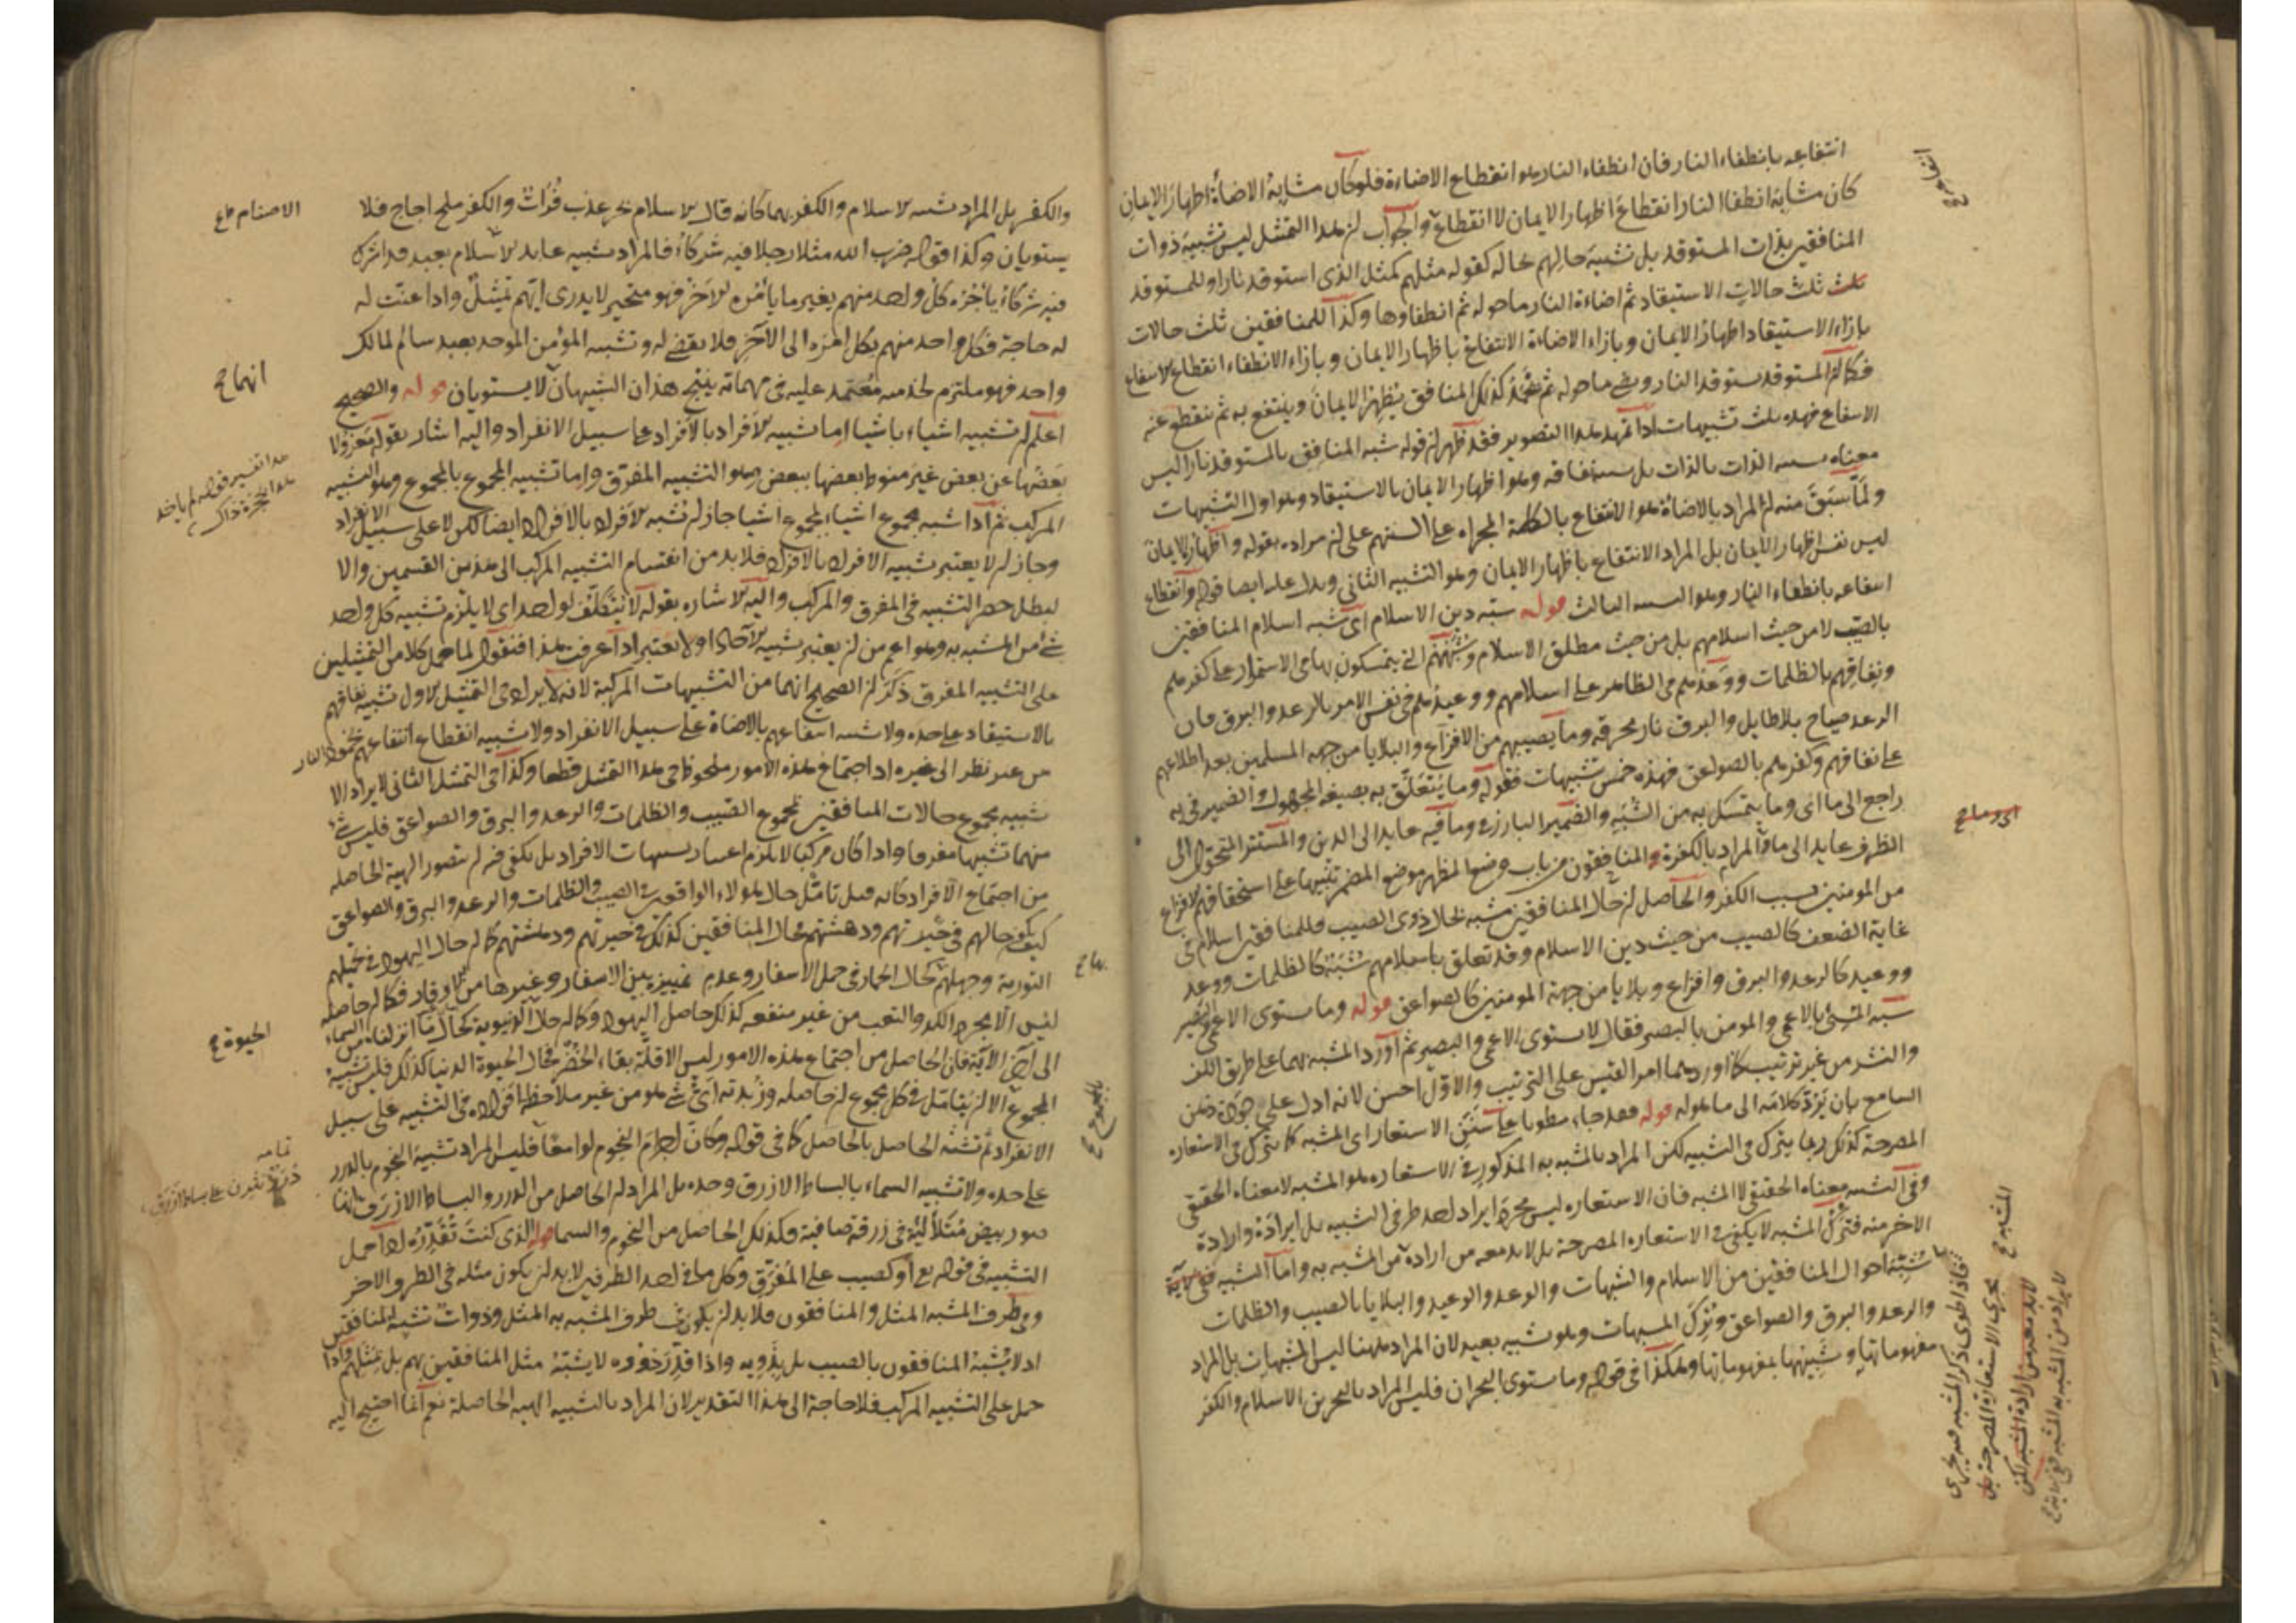 انتفاعه بانطفاء النار فان انطفاء النار هو انقطاع الاضاءة فلو كان مشابهة الاضاءة اظهار الايمان
كان مشابهة انطفا النار انقطاع اظهار الايمان لا انقطاع والجواب ان هذا التمثل ليس تشبيه ذوات
المنافقين بذات المستوقد بل تشبيه حالهم بحاله كقوله مثلهم كمثل الذى استوقد نارا وللمستوقد
ثلث حالات الاستيقاد ثم اضاءة النار ما حوله ثم انطفاوها وكذا للمنافقين ثلث حالات
بازاء الاستيقاد اظهار الايمان وبازاء الاضاءة الانتفاع باظهار الايمان وبازاء الانطفاء انقطاع الانتفاع
فكما ان المستوقد يستوقد النار ويضئ ما حوله ثم تخمد كذلك المنافق يظهر الايمان وينتفع به ثم ينقطع عنه
الانتفاع فهذه ثلث تشبيهات اذا تمهد هذا التصوير فقد ظهر ان قوله شبه المنافق بالمستوقد نارا ليس
معناه تشبيه الذات بالذات بل تشبيه نفاقه وهو اظهار الايمان بالاستيقاد وهو اول التشبيهات
ولما سبق منه ان المراد بالاضاءة هو الانتفاع بالكلمة المجراة على السنتهم على ان مراده بقوله واظهار الايمان
ليس نفس اظهار الايمان بل المراد الانتفاع باظهار الايمان وهو التشبيه الثانى ويدل عليه ايضا قوله وانقطاع
انتفاعه بانطفاء النار وهو التشبيه الثالث قوله شبه دين الاسلام اى شبه اسلام المنافقين
بالصيب لا من حيث اسلامهم بل من حيث مطلق الاسلام وشبههم التى يتمسكون بها فى الاستمرار على كفرهم
ونفاقهم بالظلمات ووعدهم فى الظاهر على اسلامهم ووعيدهم فى نفس الامر بالرعد والبرق فان
الرعد صياح بلا طايل والبرق نار محرقة وما يصيبهم من الافزاع والبلايا من جهة المسلمين بعد اطلاعهم
على نفاقهم وكفرهم بالصواعق فهذه خمس تشبيهات فقوله وما يتعلق به بصيغة المجهول والضمير فى به
راجع الى ما اى وما يتمسك به من الشبه والضمير البارز فى وما فيه عايد الى الدين والمستتر المتحول الى
الظرف عايد الى ما والمراد بالكفرة والمنافقون من باب وضع المظهر موضع المضمر تنبيها على استحقاقهم الافزاع
من المومنين بسبب الكفر والحاصل ان حال المنافقين مشبه بحال ذوى الصيب فللمنافقين اسلام فى
غاية الضعف كالصيب من حيث دين الاسلام وقد تعلق باسلامهم شبه كالظلمات ووعد
ووعيد كالرعد والبرق وافزاع وبلايا من جهة المومنين كالصواعق قوله وما يستوى الاعمى والبصير
شبه المسئ بالاعمى والمومن بالبصير فقال لا يستوى الاعمى والبصير ثم اورد المشبه بهما على طريق اللف
والنشر من غير ترتيب كما اوردهما امرؤ القيس على الترتيب والاول احسن لانه ادل على جودة ذهن
السامع بان يرد كلامه الى ما هو له قوله فقد جاء مطويا على سنن الاستعار اى المشبه كما يترك فى الاستعارة
المصرحة كذلك ربما يترك فى التشبيه لكن المراد بالمشبه به المذكور فى الاستعاره هو المشبه لا معناه الحقيقى
وفى التشبيه معناه الحقيقى لا المشبه فان الاستعاره ليس مجرد ايراد احد طرفى التشبيه بل ايراده وارادة
الاخر منه فترك المشبه لا يكفى فى الاستعاره المصرحة بل لابد معه من ارادة من المشبه به واما التشبيه ففى الاية
شبه احوال المنافقين من الاسلام والشبهات والوعد والوعيد والبلايا بالصيب والظلمات
والرعد والبرق والصواعق وترك المشبهات وهو تشبيه بعيد لان المراد ههنا ليس المشبهات بل المراد
مفهوماتها وتشبيهها بمفهوماتها وهكذا فى قوله وما يستوى البحران فليس المراد بالبحرين الاسلام والكفر
انتفاعه
المشبه
فاذا طوى ذكر المشبه فيه
يجرى الاستعارة المصرحة بل
لابد معه من ارادة المشبه لكن
والكفر بل المراد تشبيه الاسلام والكفر بهما كانه قال الاسلام بحر عذب فرات والكفر ملح اجاج فلا
يستويان وكذا قوله ضرب الله مثلا رجلا فيه شركاء فالمراد تشبيه عابد الاصنام بعبد قد اشترك
فيه شركاء يامره كل واحد منهم بغير ما يامره الاخر فهو متحير لا يدرى ايهم يمتثل واذا عنت له
له حاجة فكل واحد منهم يكل امره الى الآخر فلا يقضى له وتشبيه المؤمن الموحد بعبد سالم لمالك
واحد فهو ملتزم لخدمته معتمد عليه فى مهماته ينتج هذان الشبيهان لا يستويان قوله والصحيح
اعلم ان تشبيه اشياء باشيا اما تشبيه الافراد بالافراد على سبيل الانفراد واليه اشار بقوله معزولا
بعضها عن بعض غير منوط بعضها ببعض وهو التشبيه المفرق واما تشبيه المجموع بالمجموع وهو التشبيه
المركب ثم اذا شبه مجموع اشياء بمجموع اشيا جاز ان تشبه الافراد بالافراد ايضا لكن لا على سبيل الانفراد
وجاز ان لا يعتبر تشبيه الافراد بالافراد فلا بد من انقسام التشبيه المركب الى هذين القسمين والا
لبطل حصر التشبيه فى المفرق والمركب واليه الاشاره بقوله لا يتكلف لواحد اى لا يلتزم تشبيه كل واحد
شئ من المشبه به وهو اعم من ان يعتبر تشبيه الآحاد او لا يعتبر اذا عرفت هذا فنقول لما حمل كلا من التمثيلين
على التشبيه المفرق ذكر ان الصحيح انهما من التشبيهات المركبة لانه لا يراد فى التمثيل الاول تشبيه نفاقهم
بالاستيقاد على حده ولا تشبيه انتفاعهم بالاضاة على سبيل الانفراد ولا تشبيه انقطاع انتفاعهم بخمود النار
من غير نظر الى غيره اذ اجتماع هذه الامور ملحوظ فى هذا التمثل قطعا وكذا فى التمثل الثانى لا يراد الا
تشبيه مجموع حالات المنافقين بمجموع الصيب والظلمات والرعد والبرق والصواعق فليس شئ
منهما تشبيها مفرقا واذا كان مركبا لا يلزم اعتبار تشبيهات الافراد بل يكفى فيه ان يتصور الهيئة الحاصله
من اجتماع الافراد كانه قيل تامل حال هولاء الواقعين فى الصيب والظلمات والرعد والبرق والصواعق
كيف يكون حالهم فى حيرتهم ودهشتهم فحال المنافقين كذلك فى حيرتهم ودهشتهم كما ان حال اليهود فى تحملهم
التورية وجهلهم كحال الحمار فى حمل الاسفار وعدم تمييزه بين الاسفار وغيرها من الاوقار فكما ان حاصله
ليس الا مجرد الكد والتعب من غير منفعه كذلك حاصل اليهود وكما ان حال الدنيوية كحال ماء انزلناه من السماء
الى آخر الآية فان الحاصل من اجتماع هذه الامور ليس الا قلة بقاء الخضر فحال الحيوة الدنيا كذلك فليس تشبيه
المجموع الا ان يتامل فى كل مجموع ان حاصله وزبدته اى شئ هو من غير ملاحظة افراده فى التشبيه على سبيل
الانفراد ثم تشبه الحاصل بالحاصل كما فى قوله وكان اجرام النجوم لوامعا فليس المراد تشبيه النجوم بالدرر
على حده ولا تشبيه السماء بالبساط الازرق وحده بل المراد ان الحاصل من الدرر والبساط الازرق انما
صور بيض متلألئة فى زرقة صافية وكذلك الحاصل من النجوم والسماء قوله الذى كنت تقدره اذا حمل
التشبيه فى قوله تع او كصيب على المفرق وكل ما فى احد الطرفين لابد ان يكون مثله فى الطرف الاخر
وفى طرف المشبه المثل والمنافقون فلابد ان يكون فى طرف المشبه به المثل وذوات تشبه المنافقين
اذ لا يشبه المنافقون بالصيب بل بذويه واذا قدر ذووه لا يشبه مثل المنافقين بهم بل بمثلهم واذا
حمل على التشبيه المركب فلا حاجة الى هذا التقدير لان المراد بالتشبيه الهيئة الحاصلة نعم انما احتيج اليه
الاصنام صح
انهما
هذا تفسير قوله لم ياخذ
هذا بحجزة ذاك
الحيوة
تمامه
درر نثرن على بساط ازرق